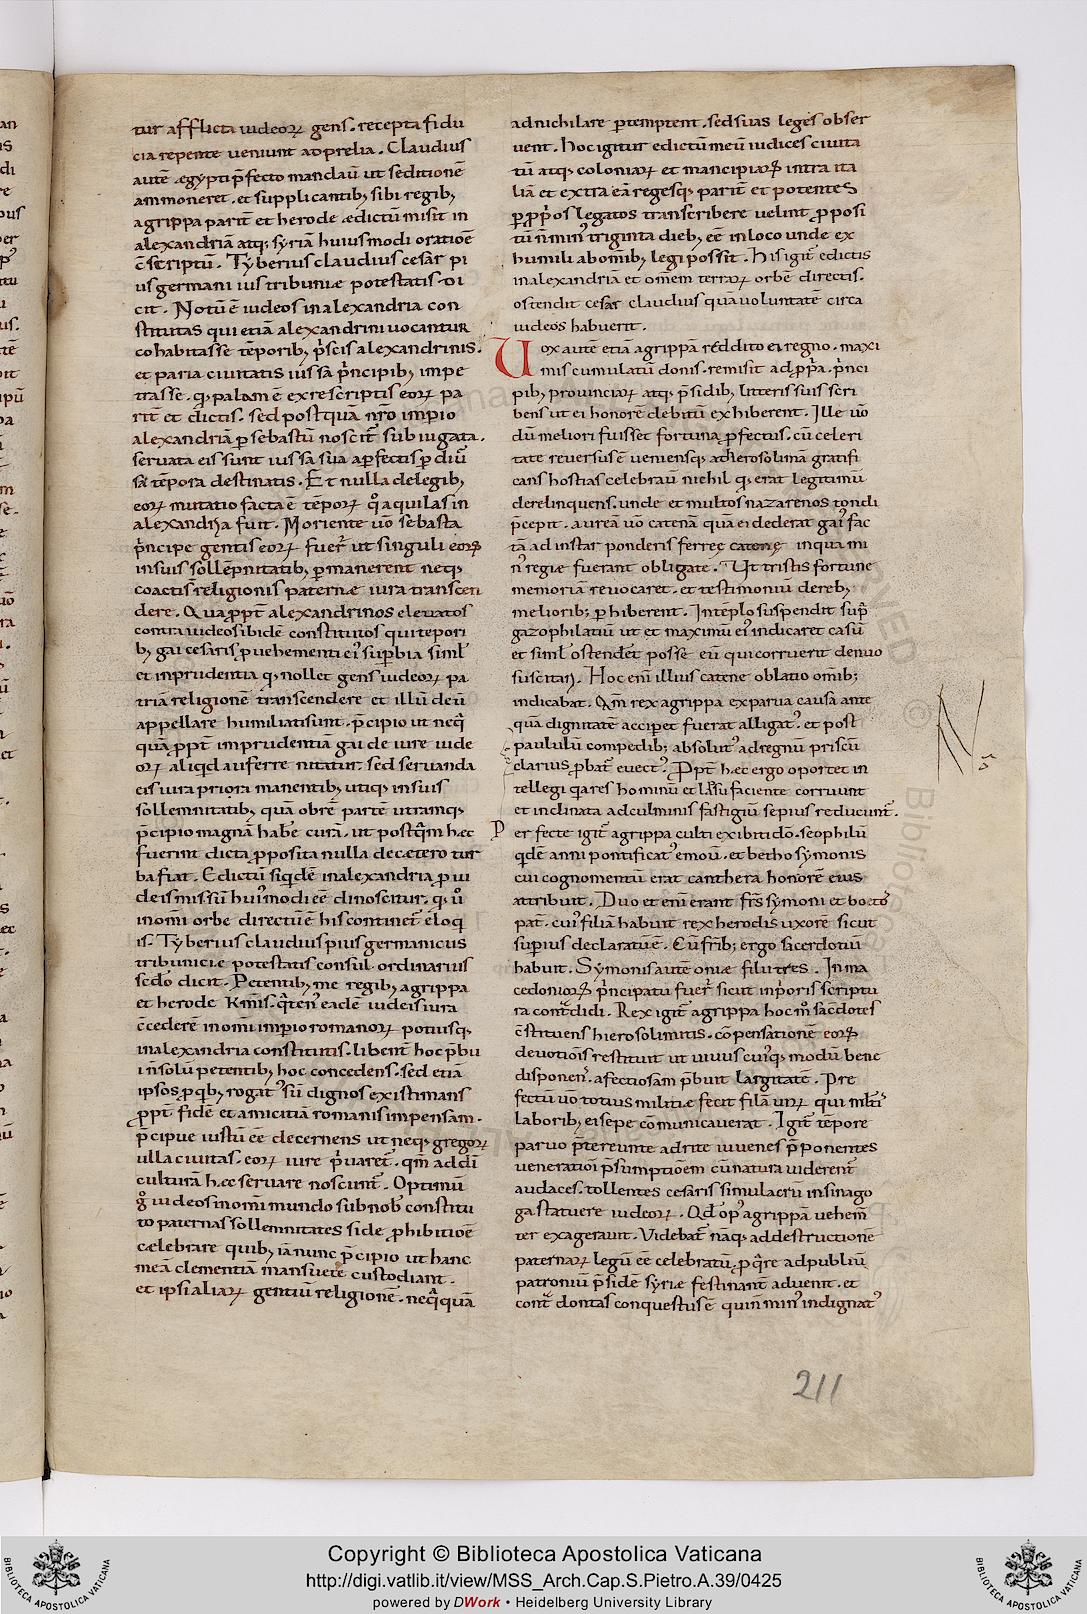 tur afflicta iudeoꝝ gens. recepta fidu
cia repente ueniunt ad prelia. Claudius
autē ęgypti p̄fecto mandauit ut seditionē
ammoneret. et supplicantib; sibi regib;
agrippa pariꞇ̄ et herode ędictū misit in
alexandriā atq; syriā huiusmodi oratiōe
c̄scriptū. Tyberius claudius cesar pi
us germani ius tribuniæ potestatis. di
cit. Notū ē iudeos in alexandria con
stitutas qui etiā alexandrini uocantur
cohabitasse tēporib; p̄scis alexandrinis.
et paria ciuitatis iussa p̄ncipib; impe
trasse. q; palam ē ex rescriptis eorꝝ pa
rit̄ et d̄ictis. sed postquā nr̄o imp̄io
alexandriā p sebastū noscit̄ subiugata.
seruata eis sunt iussa sua a p̄fectis p diū
sa tēpora destinatis. Et nulla de legib;
eorꝝ mutatio facta ē tēporꝝ q̊ aquilas in
alexandria fuit. Moriente ūo sebasta
p̄ncipe gentis eorꝝ fuer̄ ut singuli eorꝝ
in suis sollēpnitatib; pmanerent neq;
coactis religionis paternæ iura transcen
dere. Qua ppt̄ alexandrinos eleuatos
contra iudeos ibidē constitutos qui tepori
b; gai cesaris p uehementi ei' supbia simł
et inprudentia q; nollet gens iudeorꝝ pa
triā religionē transcendere et illū deū
appellare humiliati sunt. p̄cipio ut neq̄
quā ppt̄ imprudentiā gai de iure iude
orꝝ aliqid auferre nitatur. sed seruanda
eis iura priora manentib; utiq; in suis
sollemnitatib; quā obrē partē utramq;
p̄cipio magnā habē curā. ut postq̄m hæc
fuerint dicta pposita nulla decætero tur
ba fiat. Edictū siqidē in alexandria p iu
deis missū hui'modi eē dinoscitur. q; ů
in om̄i orbe directū ē his continet̄ eloq
is. Tyberius claudius pius germanicus
tribuniciæ potestatis consul ordinarius
sc̄do dicit. Petentib; me regib; agrippa
et herode kmīs. q̄ten' eadē iudeis iura
c̄cederē in om̄i imp̄io romanorꝝ potius q;
in alexandria constitutis. libent̄ hoc p̄bui
i ñ solū petentib; hoc concedens. sed etiā
ipsos p qb; rogat' sū dignos existimans
ppt̄ fidē et amicitiā romanis impensam.
p̄cipue iustū eē decernens ut neq; gregorꝝ
ulla ciuitas. eorꝝ iure p̄uaret̄. qm̄ addī
culturā hæc seruare noscunt̄. Optimū
g̊ iudeos in om̄i mundo sub nob̄ constitu
to paternas sollemnitates si de phibitiōe
cælebrare quib; iā nunc p̄cipio ut hanc
meā clementiā mansuete custodiant.
et ipsi aliarꝝ gentiū religionē. neq̄quā
adnichilare ptemptent. sed suas leges obser
uent. Hoc igitur edictū meū iudices ciuita
tū atq; coloniarꝝ et mancipiarꝝ intra ita
liā et extra eā reges q; pariꞇ̄ et potentes
p pp̄os legatos transcribere uelint pposi
tū ñ min' triginta dieb; eē in loco unde ex
humili ab om̄ib; legi possit. His igit̄ edictis
in alexandriā et om̄em terrarꝝ orbē directis.
ostendit cesar claudius quā uoluntatē circa
iudeos habuerit.
Uox autē etiā agrippā reddito ei regno. maxi
mis cumulatū donis. remisit ad ppa. p̄nci
pib; prouinciarꝝ atq; p̄sidib; litteris suis scri
bens ut ei honorē debitū exhiberent. Ille ūo
dū meliori fuisset fortuna pfectus. cū celeri
tate reuersus ē ueniensq; ad hierosolimā gratifi
cans hostias celebrauit niehil q; erat legitimū
derelinquens. unde et multos nazarenos tondi
p̄cepit. aureā ūo catenā quā ei dederat gai' fac
tā ad instar ponderis ferreę catenę in qua mi
n' regiæ fuerant obligate. Ut tristis fortune
memoriā reuocaret. et testimoniū de reb;
meliorib; phiberent. In tēplo suspendit sup̄
gazophilatiū ut et maximū ei' indicaret casū
et simł ostendet posse eū qui corruerit denuo
suscitari. Hoc enī illius catene oblatio om̄ib;
indicabat. Qm̄ rex agrippa ex parua causa ante
quā dignitatē acciper fuerat alligat'. et post
paululū compedib; absolut' ad regnū priscū
clarius pbat̄ euect'. Ppt̄ hæc ergo oportet in
tellegi q res hominū et lsu faciente corruunt
et inclinata ad culminis fastigiū sepius reducunt̄.
Perfecte igit̄ agrippa culti exibiti dō. seophilū
qdē anni pontificat' emou. et betho symonis
cui cognomentū erat canthera honorē eius
attribuit. Duo et enī erant frs̄ symoni et boeto
pat̄. cui' filiā habuit rex herodis uxorē sicut
supius declaratū ē. Cū frīb; ergo sacerdotiū
habuit. Symonis autē oniæ filii tres. In ma
cedoniorꝝ p̄ncipatu fuer̄ sicut in p̄oris scriptu
ra cont̄didi. Rex igit̄ agrippa hoc mo sac̄dotes
c̄stituens hierosolimitis. cōpensationē eorꝝ
deuotiōis restituit ut uiuus cui'q; modū bene
disponen'. afectiosam p̄buit largitatē. Pre
fectū ūo totius militiæ fecit silā unꝝ qui mlt̄i'
laborib; ei sepe cōmunicauerat. Igit̄ tēpore
paruo p̄tereunte adrite iuuenes p̄ponentes
ueneratiōi p̄sumptiōem cū natura uiderent̄
audaces. tollentes cesaris simulacrū in sinago
ga statuere iudeorꝝ. Qd̄ op' agrippā uehem̄
ter exagerauit. Videbat̄ nāq; ad destructionē
paternarꝝ legū eē celebratū p q̄re ad publiū
patroniū p̄sidē syriæ festinant̄ aduenit. et
cont̄ dontas conquestus ē quin min' indignat'
211
Copyright © Biblioteca Apostolica Vaticana
http://digi.vatlib.it/view/MSS_Arch.Cap.S.Pietro.A.39/0425
powered by DWork • Heidelberg University Library